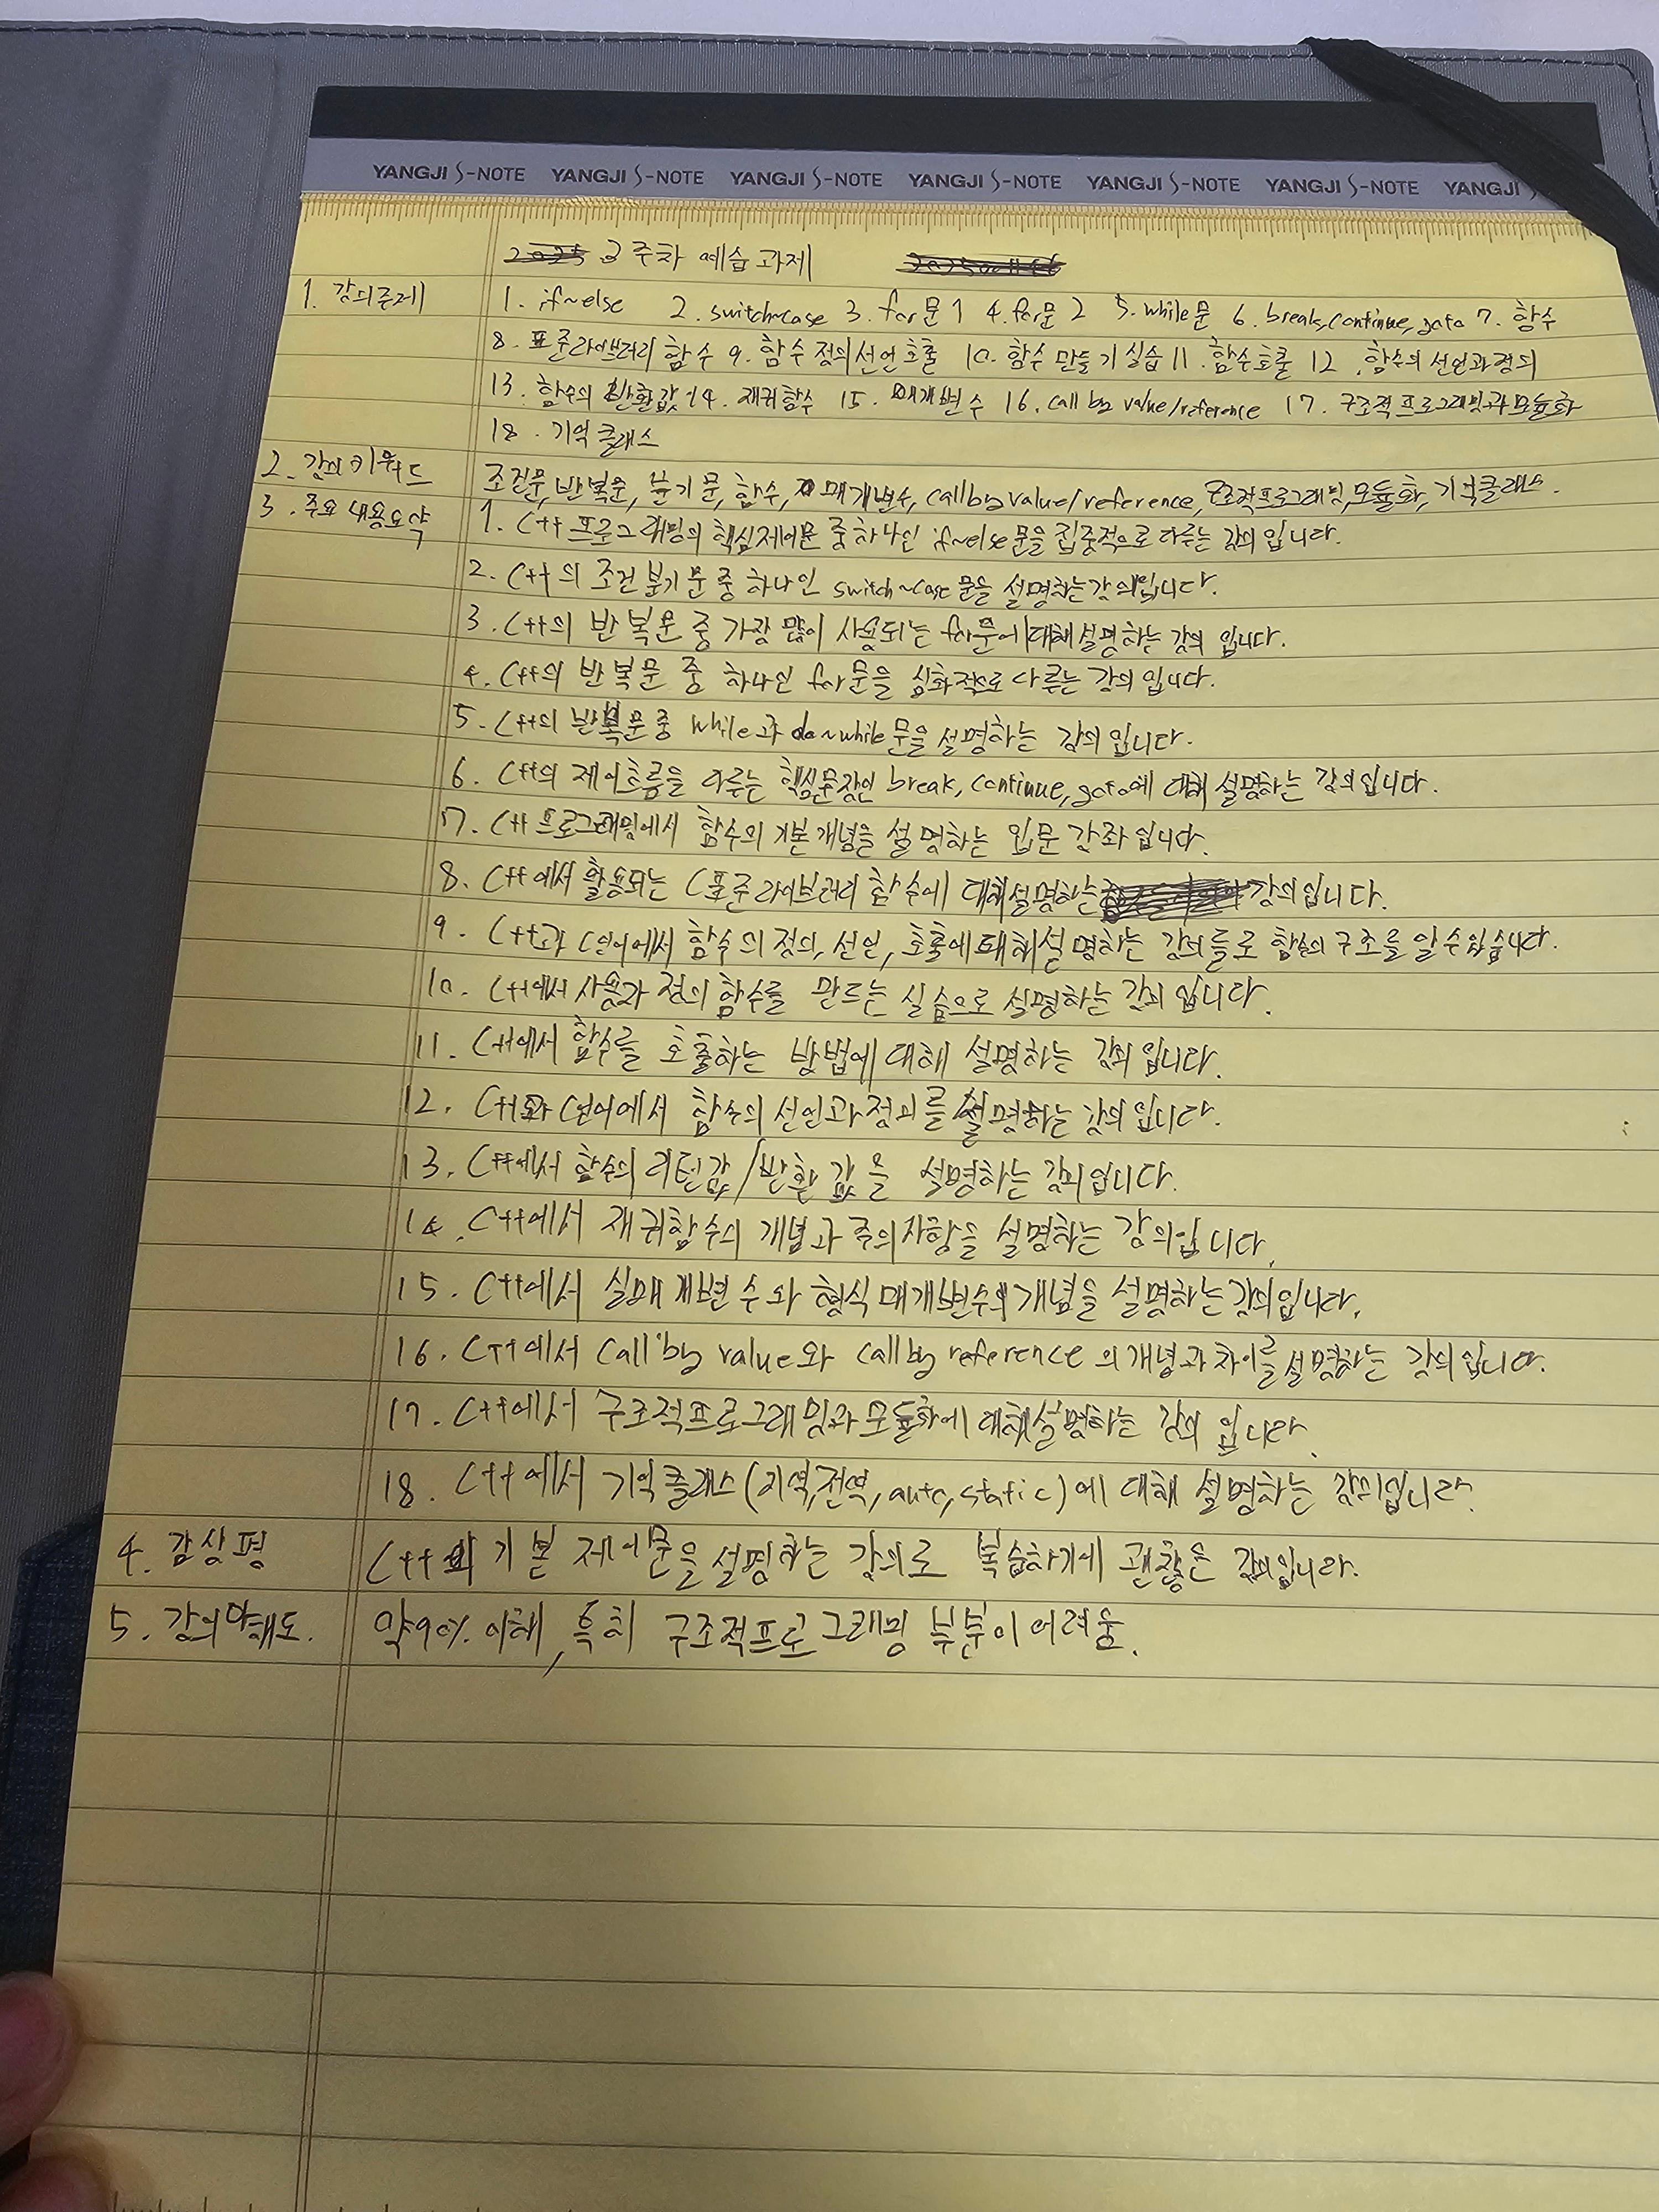 YANGJI S-NOTE YANGJI S-NOTE YANGJI S-NOTE YANGJI S-NOTE YANGJI S-NOTE YANGJI S-NOTE YANGJI
3주차 예습과제
1. 강의주제 1. if~else 2. switch~case 3. for문1 4. for문 2 5. while문 6. break, continue, goto 7. 함수
8. 표준라이브러리 함수 9. 함수 정의선언호출 10. 함수 만들기실습 11. 함수호출 12. 함수의 선언과정의
13. 함수의 반환값 14. 재귀함수 15. 매개변수 16. call by value/reference 17. 구조적프로그래밍과 모듈화
18. 기억클래스
2. 강의키워드 조건문, 반복문, 분기문, 함수, 매개변수, call by value/reference, 구조적프로그래밍, 모듈화, 기억클래스.
3. 주요내용요약 1. C++ 프로그래밍의 핵심제어문 중하나인 if~else문을 집중적으로 다루는 강의입니다.
2. C++의 조건분기문 중 하나인 switch~case문을 설명하는강의입니다.
3. C++의 반복문 중 가장 많이 사용되는 for문에대해설명하는 강의 입니다.
4. C++의 반복문 중 하나인 for문을 심화적으로 다루는 강의입니다.
5. C++의 반복문중 while과 do~while문을 설명하는 강의입니다.
6. C++의 제어흐름을 다루는 핵심문장인 break, continue, goto에 대해 설명하는 강의입니다.
7. C++프로그래밍에서 함수의 기본개념을 설명하는 입문 강좌입니다.
8. C++에서 활용되는 C표준라이브러리 함수에 대해설명하는 강의입니다.
9. C++과 C언어에서 함수의 정의, 선언, 호출에대해설명하는 강의들로 함수의 구조를 알수있습니다.
10. C++에서 사용자 정의 함수를 만드는 실습으로 설명하는 강의입니다.
11. C++에서 함수를 호출하는 방법에 대해 설명하는 강의입니다.
12. C++와 C언어에서 함수의 선언과 정의를 설명하는 강의입니다.
13. C++에서 함수의 리턴값/반환값을 설명하는 강의입니다.
14. C++에서 재귀함수의 개념과 주의사항을 설명하는 강의입니다.
15. C++에서 실매개변수와 형식매개변수의개념을 설명하는강의입니다.
16. C++에서 call by value와 call by reference의개념과차이를설명하는 강의입니다.
17. C++에서 구조적프로그래밍과 모듈화에 대해설명하는 강의 입니다.
18. C++에서 기억클래스(지역,전역,auto,static)에 대해 설명하는 강의입니다.
4. 감상평 C++의 기본 제어문을 설명하는 강의로 복습하기에 괜찮은 강의입니다.
5. 강의이해도. 약90% 이해, 특히 구조적프로그래밍 부분이 어려움.